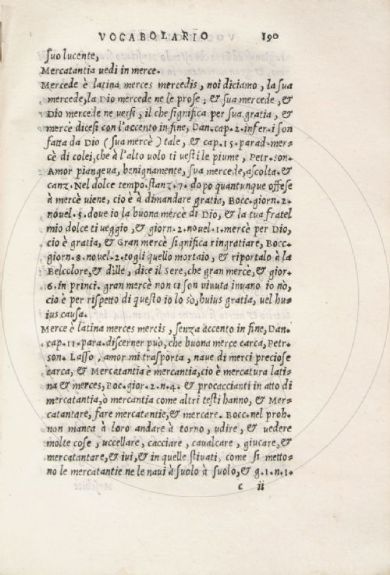 VOCABOLARIO 190
suo lucente,
Mercatantia uedi in merce.
Mercede è latina merces mercedis, noi diciamo, la sua
mercede, la Dio mercede ne le prose, & sua mercede, &
Dio mercede ne uersi, il che significa per sua gratia, &
mercè dicesi con l'accento in fine, Dan. cap. 2. infer. i son
fatta da Dio (sua mercè) tale, & cap. 15. parad. mer=
cè di colei, che à l'alto uolo ti uesti le piume, Petr. son.
Amor piangeua, benignamente, sua mercede, ascolta. &
canz. Nel dolce tempo. stanz. 7. dopo quantunque offese
à mercè uiene, cio è à dimandare gratia, Bocc. giorn. 2.
nouel. 5. doue io la buona mercè di Dio, & la tua fratel
mio dolce ti ueggio, & giorn. 2. nouel. 1. mercè per Dio,
cio è gratia, & Gran mercè significa ringratiare, Bocc.
giorn. 8. nouel. 2. togli quello mortaio, & riportalo à la
Belcolore, & dille, dice il sere, che gran mercè, & gior.
6. in princi. gran mercè non ci son uiuuta inuano io nò,
cio è per rispetto di questo io lo sò, huius gratia, uel hu=
ius causa.
Merce è latina merces mercis, senza accento in fine, Dan.
cap. 11. para. discerner può, che buona merce carca, Petr.
son. Lasso, amor mi trasporta, naue di merci preciose
carca, & Mercatantia è mercantia, cio è mercatura lati
na & merces, Boc. gior. 2. n. 4. & procaccianti in atto di
mercatantia, ò mercantia come altri testi hanno, & Mer=
catantare, fare mercatantie, & mercare. Bocc. nel proh.
non manca à loro andare à torno, udire, & uedere
molte cose, uccellare, cacciare, caualcare, giucare, &
mercatantare, & iui, & in quelle stiuati, come si metto=
no le mercatantie ne le naui à suolo à suolo, & g. 1. n. 1.
c ii